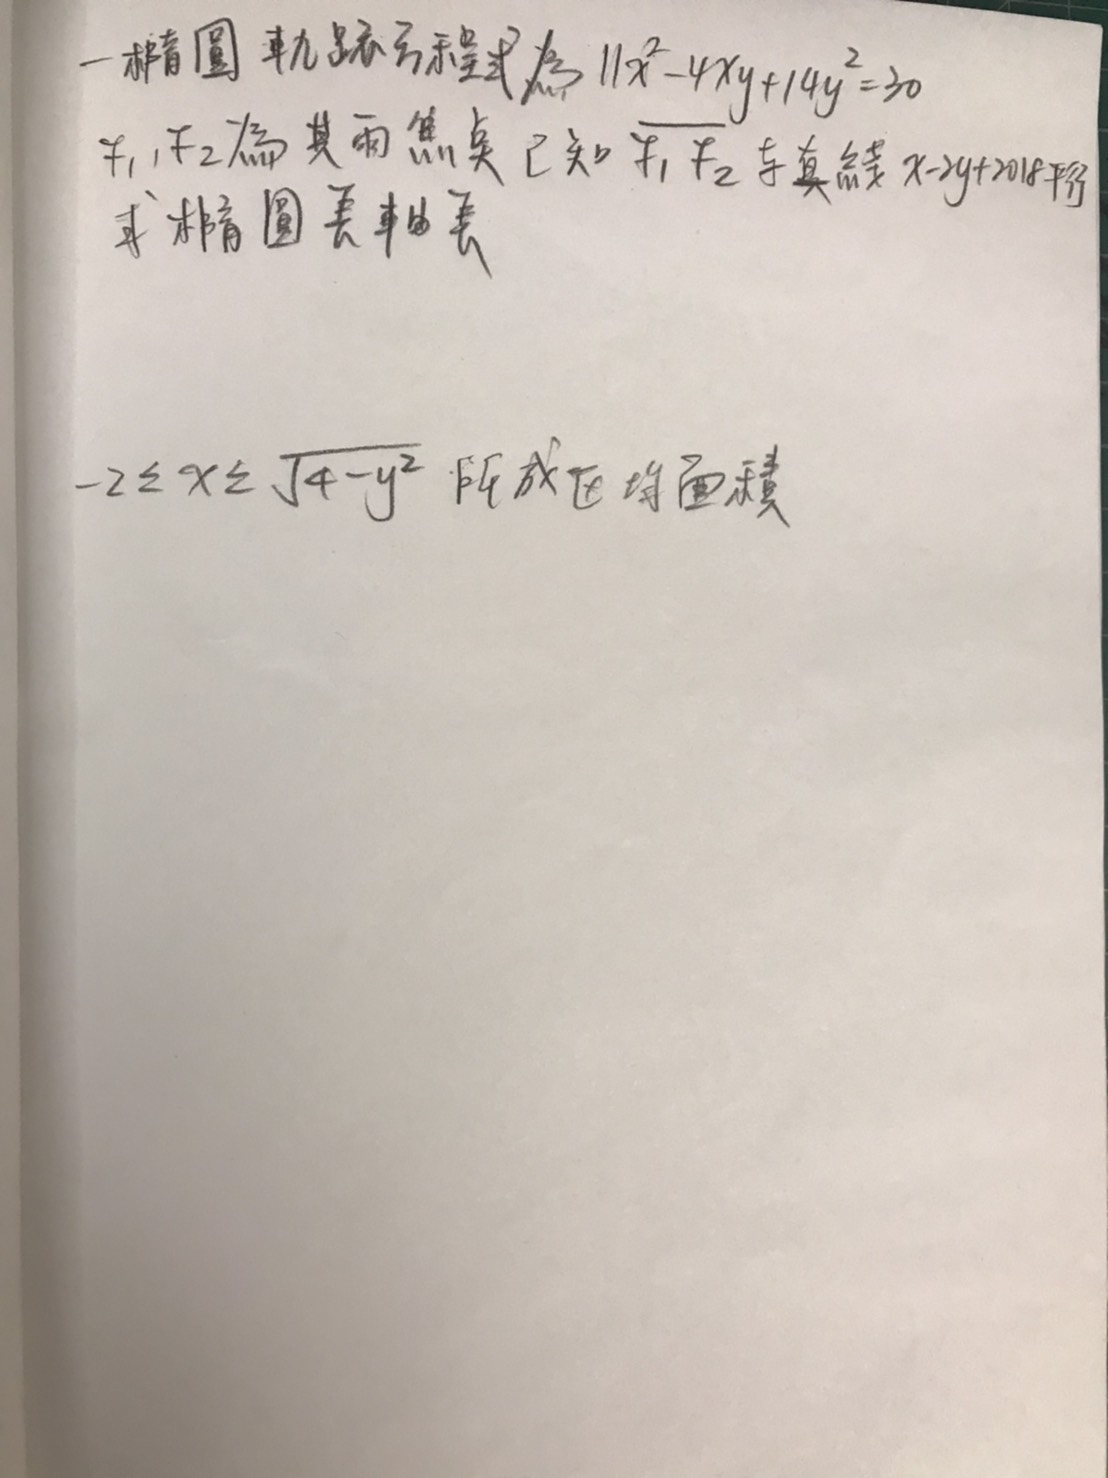 一橢圓軌跡方程式為 11x²-4xy+14y²=30
F₁,F₂為其兩焦点已知 F₁F₂ 与直線 x-2y+2018平行
求橢圓長軸長
-2≤x≤√4-y² 所成区域面積